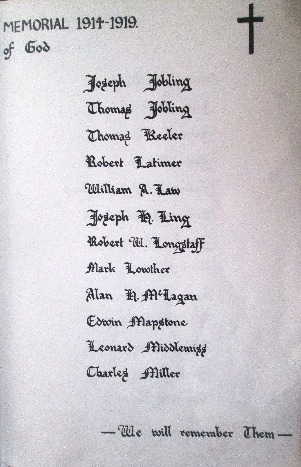 MEMORIAL 1914-1919.
of God
Joseph Jobling
Thomas Jobling
Thomas Keeler
Robert Latimer
William A. Law
Joseph H. Ling
Robert W. Longstaff
Mark Lowther
Alan H. McLagan
Edwin Mapstone
Leonard Middlemiss
Charles Miller
— We will remember Them —